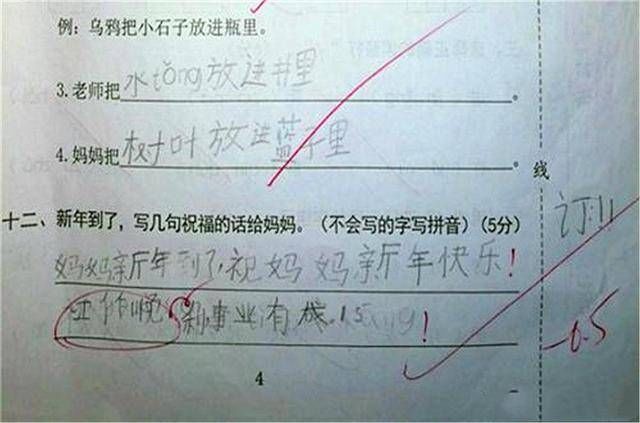 例：乌鸦把小石子放进瓶里。
3.老师把水tǒng放进井里。
4.妈妈把树叶放进蓝子里。
线
十二、新年到了，写几句祝福的话给妈妈。（不会写的字写拼音）（5分）
订!!
妈妈新年到了,祝妈妈新年快乐!
事业有成!
-0.5
4